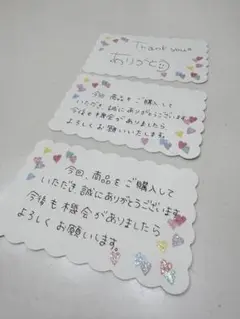 Thank you
ありがと
今回、商品をご購入して
いただき誠にありがとうございます。
今後も機会がありましたら
よろしくお願いいたします。
今回、商品をご購入して
いただき、誠にありがとうございます。
今後も機会がありましたら
よろしくお願いします。